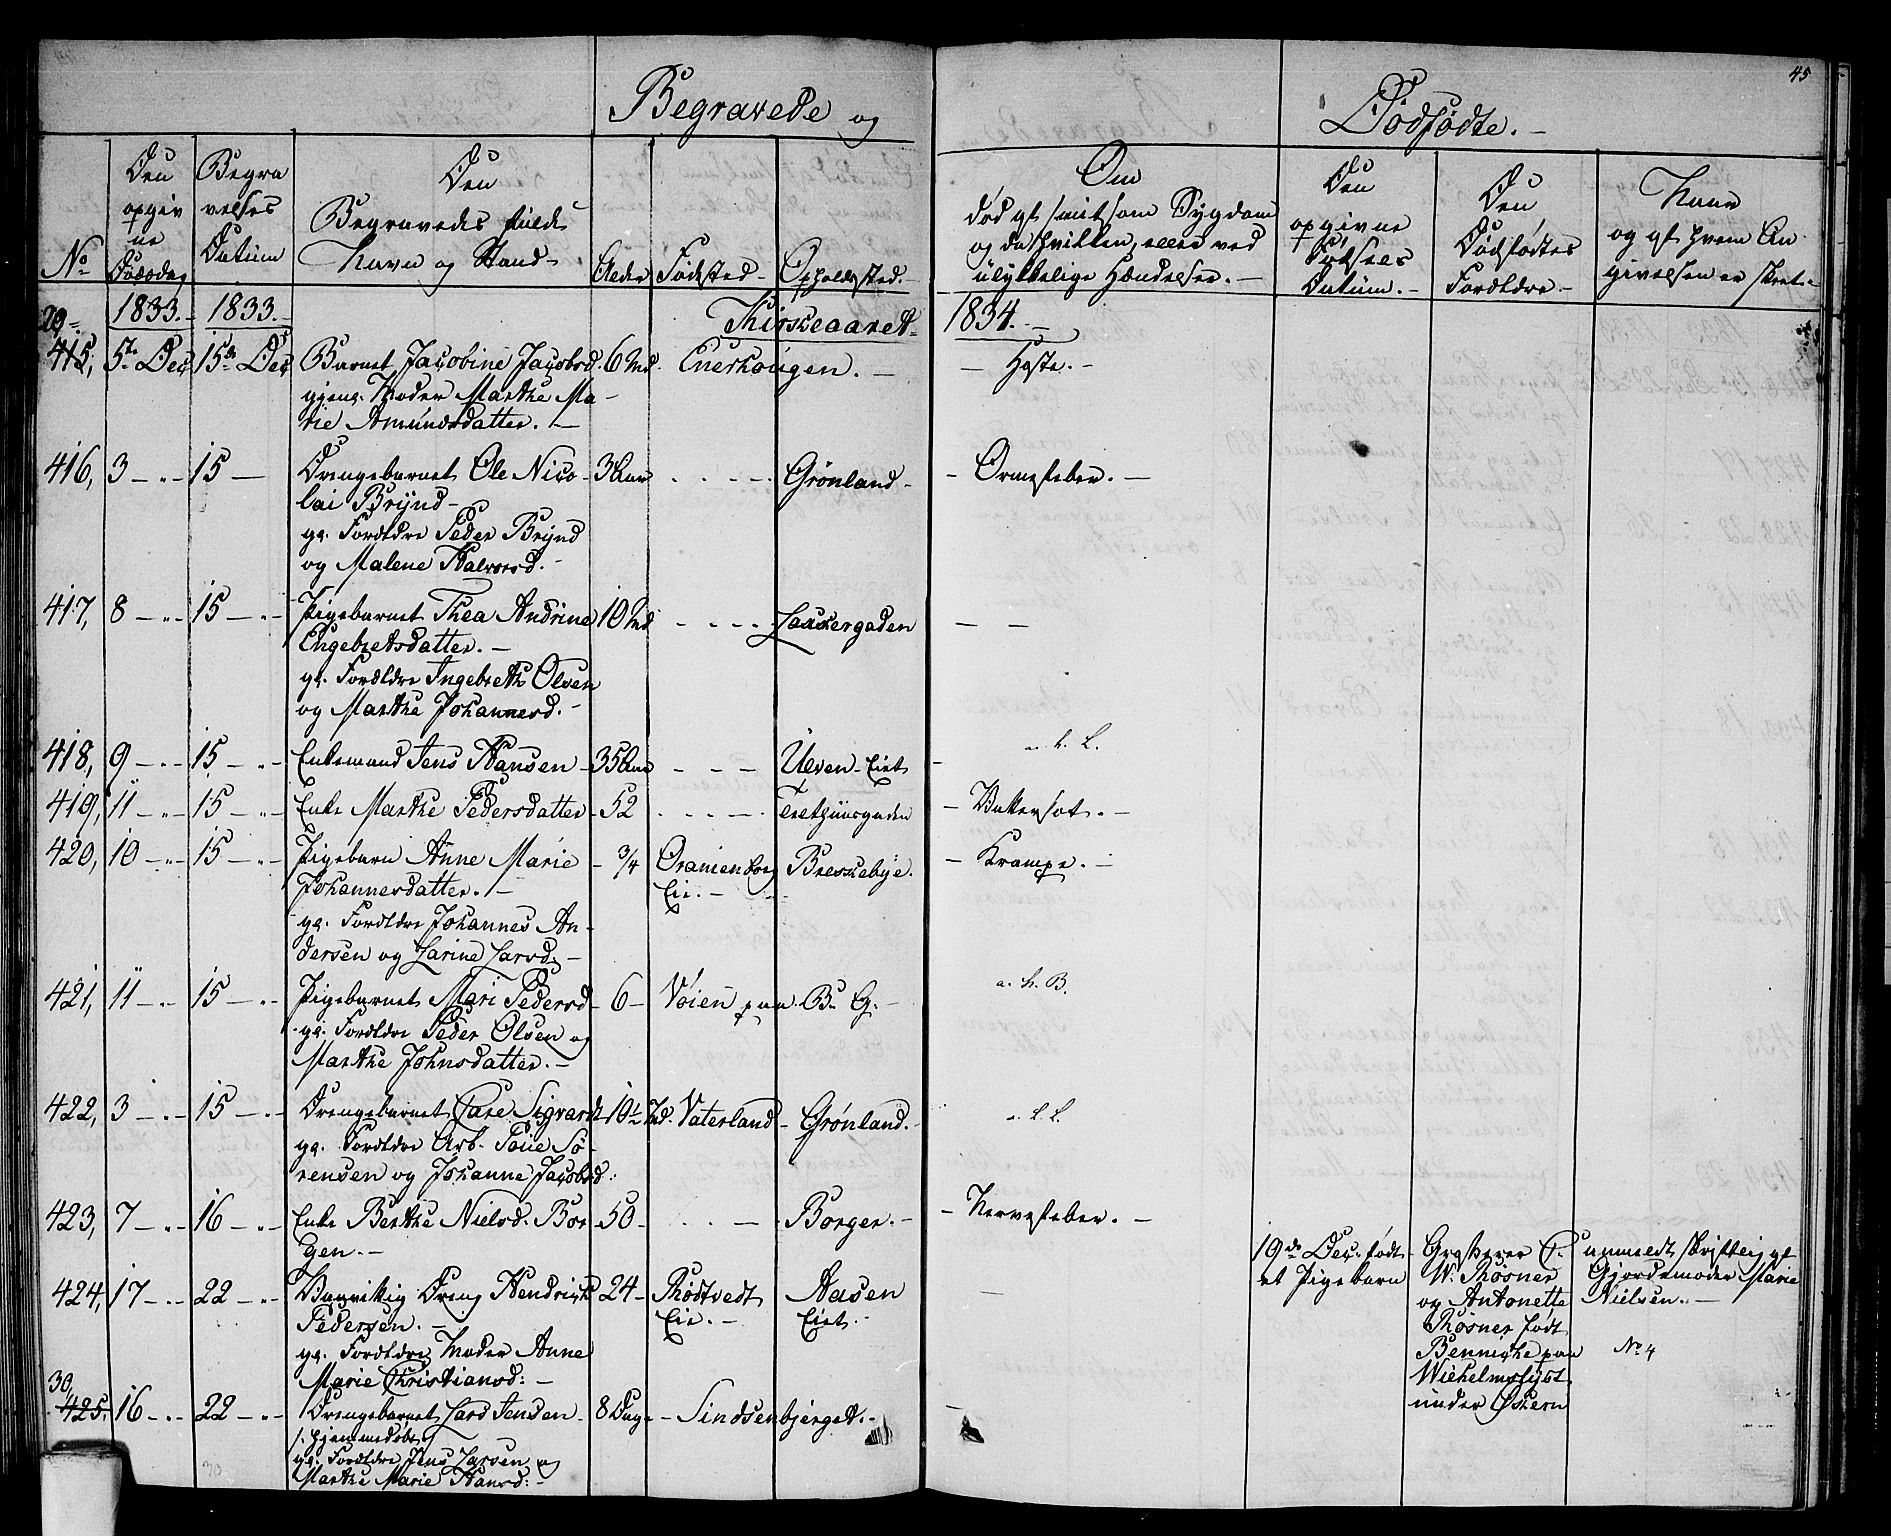 45
Begravede og Dødfødte.
No
Den opgivne Dødsdag
Begravelses Datum
Den Begravedes fulde Navn og Stand
Alder
Fødsted
Opholdssted.
Om
død af smitsom Sygdom
og da hvilken, eller ved
ulykkelige Hændelser.
Den
opgivne
Fødsels
Datum.
Den
Dødfødtes
Forældre
Naar
og af hvem An
givelsen er skeet.
29
1833. 1833. Kirkeaaret 1834.
415, 5te Dec 15de Dec Barnet Jacobine Jacobsd. 6 Md. Enerhougen. Hoste.
Moder Marthe Ma
rie Amundsdatter.
416, 3 15 Drengebarnet Ole Nico 3 Aar Grønland Ormefeber.
lai Brynd
ga. Forældre Peder Brynd
og Malene Halvorsd.
417, 8 15 Pigebarnet Thea Andrine 10 Md Lakkergaden
Engebretsdatter.
ga. Forældre Ingebreth Olsen
og Marthe Johannesd.
418, 9 15 Enkemand Jens Hansen 35 Aar Ulven Eiet
419, 11 15 Enke Marthe Pedersdatter 52 Vattersot.
420, 10 15 Pigebarn Anne Marie 3/4 Oranienborg Breskebye. Krampe.
Johannesdatter. Eie.
ga. Forældre Johannes An
dersen og Larine Larsd.
421, 11 15 Pigebarnet Mari Pedersd 6 Vøien paa B. G. a. h. B.
ga. Forældre Peder Olsen og
Marthe Johnsdatter.
422, 3 15 Drengebarnet Carl Sigvardt Md. Vaterland Grønland.
ga. Forældre Arb. Poul Sø
rensen og Johanne Jacobsd.
423, 7 16 Enke Berthe Nielsd. Bor 50 Borger. Nervefeber.
gen.
19de Dec. født
et Pigebarn
W. Røsner
og Antonette
Røsner født
paa
under Ekern
anmeldt skriftlig af
Gjordemoder Marie
Nielsen.
No 4
424, 17 22 Vanvittig Dreng Hendrich 24 Rødtvedt Aasen
Pedersen. Eie. Eiet.
ga. Forældre Moder Anne
Marie Christiansd:
30,
425, 16 22 Drengebarnet Lars Jensen 8 Dage Sindsenbjerget.
hjemmedøbt
ga. Forældre Jens Larsen og
Marthe Marie Hansd:
30